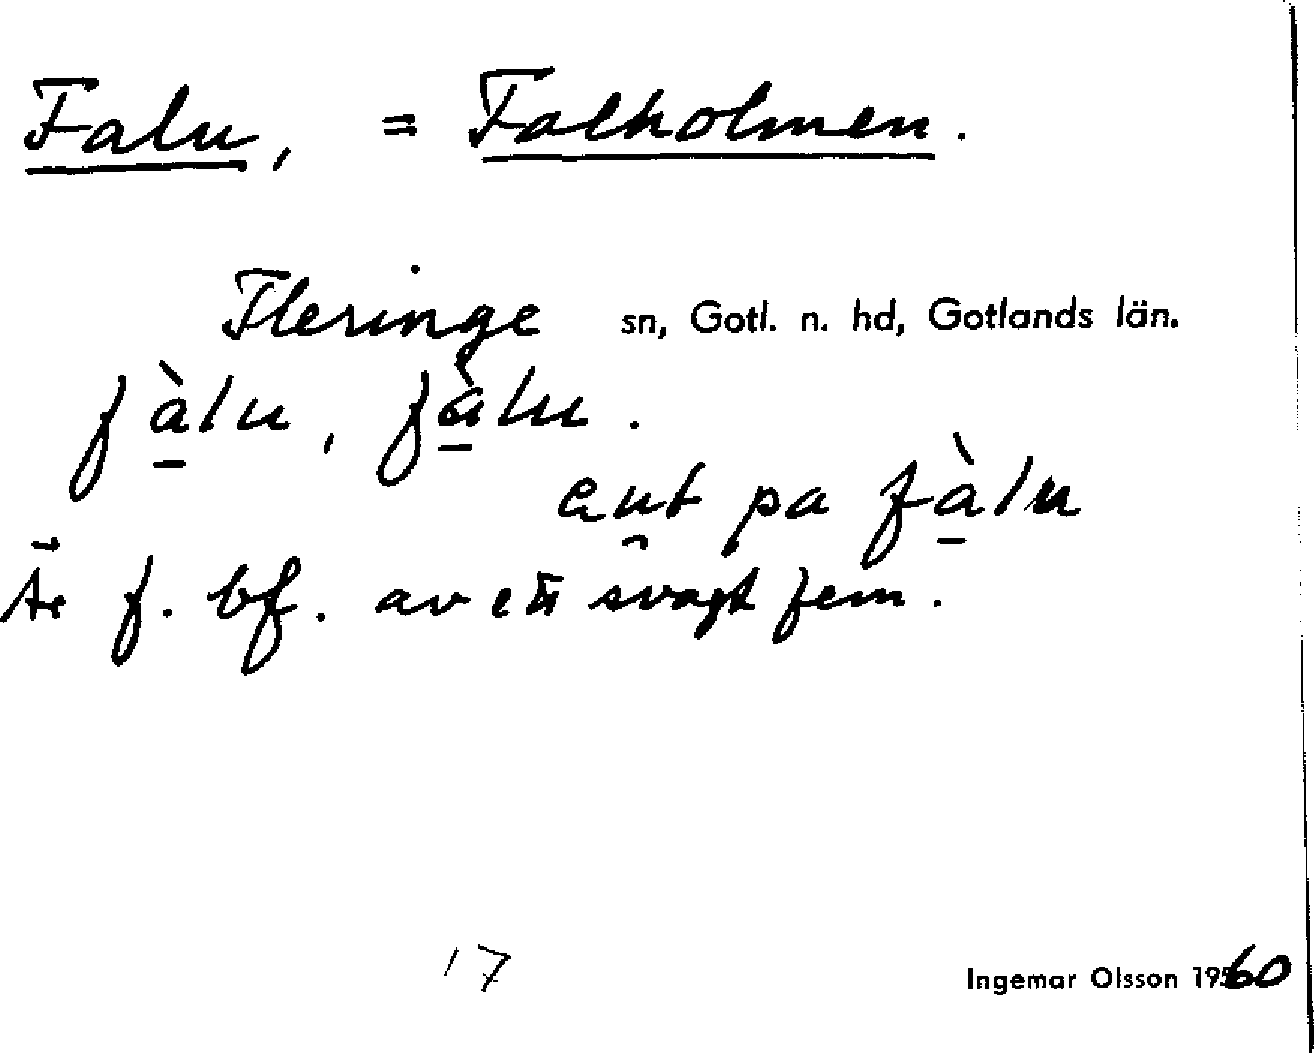 Falu, = Falholmen.
Fleringe sn, Gotl. n. hd, Gotlands län.
fà̱lu, fà̱lu.
au̯t pa fà̱lu
Är f. bf. av ett svagt fem.
17
Ingemar Olsson 1960